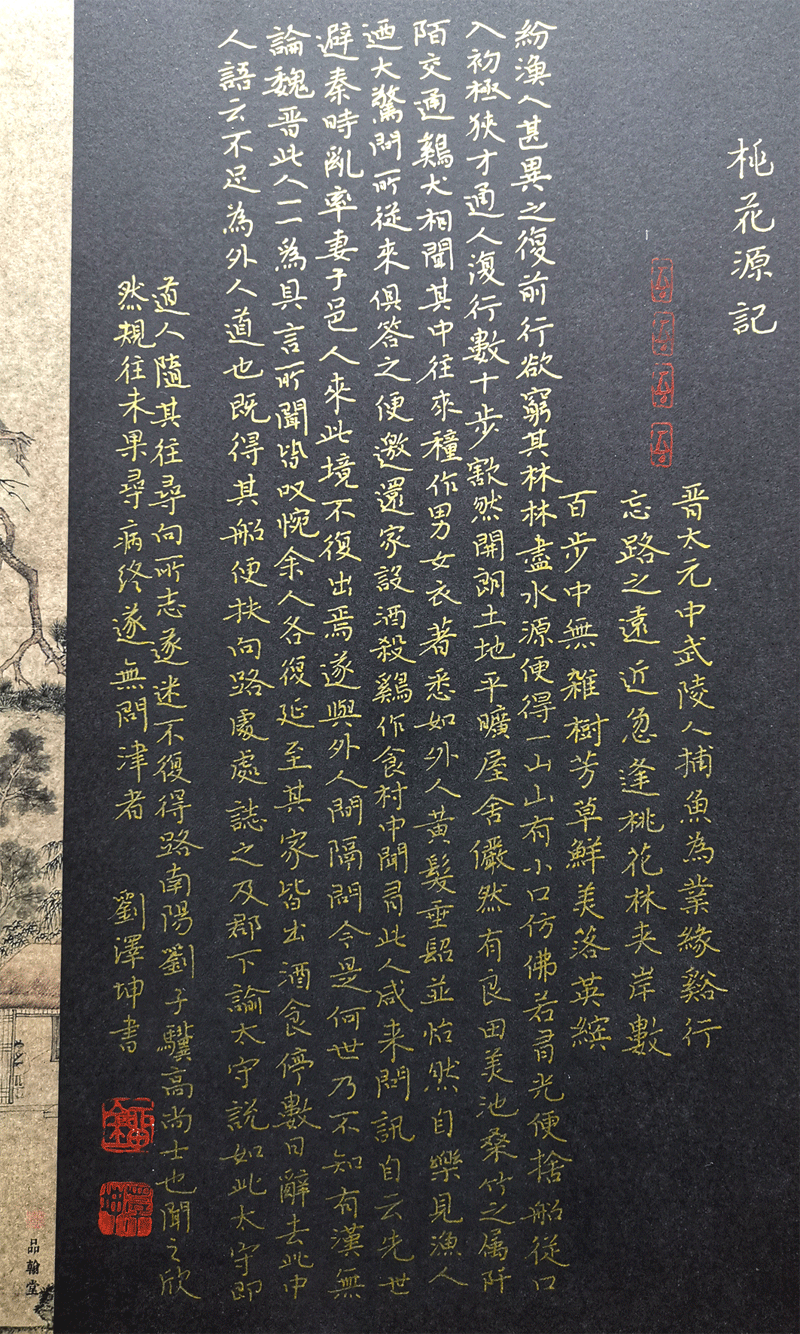 桃花源記
晋太元中武陵人捕魚為業緣谿行
忘路之遠近忽逢桃花林夹岸數
百步中無雑樹芳草鮮美落英繽
紛漁人甚異之復前行欲窮其林林盡水源便得一山山有小口仿佛若有光便捨船従口
入初極狹才通人復行數十步豁然開朗土地平曠屋舍儼然有良田美池桑竹之属阡
陌交通鷄犬相聞其中往來種作男女衣著悉如外人黄髮垂髫並怡然自樂見漁人
迺大驚問所從來俱答之便邀還家設酒殺鷄作食村中聞有此人咸来問訊自云先世
避秦時亂率妻子邑人來此境不復出焉遂與外人間隔問今是何世乃不知有漢無
論魏晋此人一一為具言所聞皆叹惋余人各復延至其家皆出酒食停數日辭去此中
人語云不足為外人道也既得其船便扶向路處處誌之及郡下論太守説如此太守即
道人隨其往尋向所志遂迷不復得路南陽劉子驥高尚士也聞之欣
然規往未果尋病终遂無問津者 劉澤坤書
品翰堂